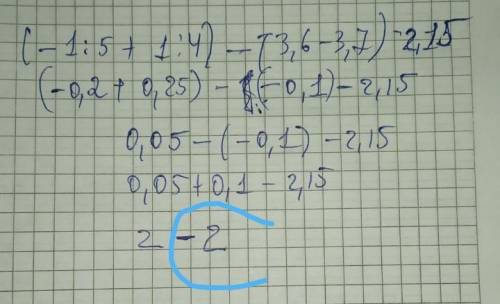 (-1:5 + 1:4) - (3,6-3,7) - 2,15
(-0,2+0,25) - (-0,1) - 2,15
0,05 - (-0,1) - 2,15
0,05+0,1 - 2,15
2 - 2